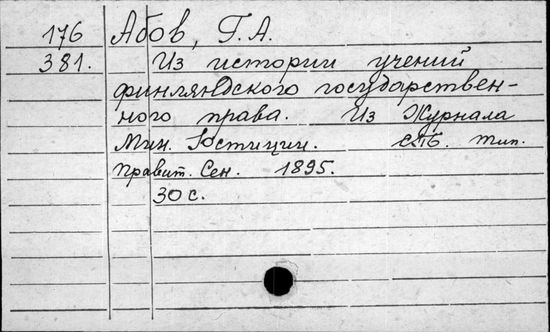 176 Абов, Г.А.
381. Из истории учений
финляндского государствен-
ного права. Из Журнала
Мин. Юстиции. СПБ. тип.
Правит. Сен. 1895.
30 с.